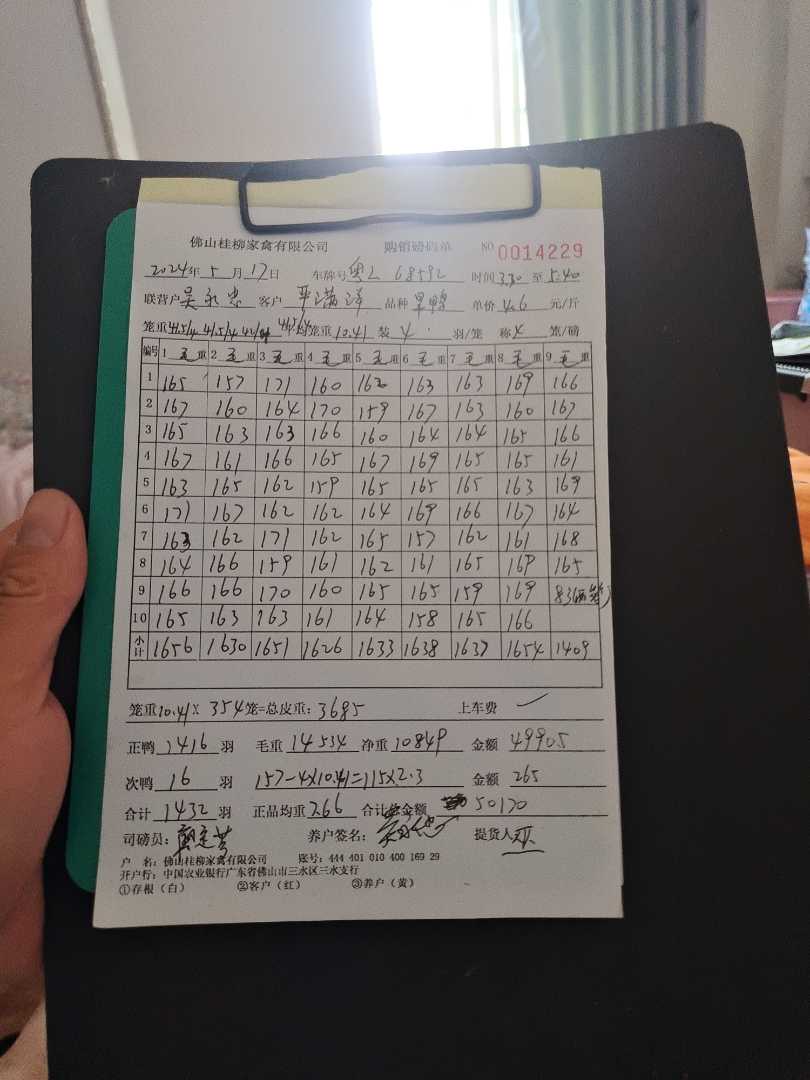 佛山桂柳家禽有限公司 购销磅码单 NO 0014229
2024年5月17日 车牌号粤L 68592 时间3.30至5.40
联营户 吴永忠 客户 平满洋 品种 旱鸭 单价4.6元/斤
笼重41.5/4 41.5/4 均笼重10.41装4羽/笼 称4笼/磅
编号 1毛重 2毛重 3毛重 4毛重 5毛重 6毛重 7毛重 8毛重 9毛重
1 165 157 171 160 162 163 163 169 166
2 167 160 164 170 159 167 163 160 167
3 165 163 163 166 160 164 164 165 166
4 167 161 166 165 167 169 165 165 161
5 163 165 162 159 165 165 165 163 169
6 171 167 162 162 164 169 166 167 164
7 163 162 171 162 165 157 162 161 168
8 164 166 159 161 162 161 165 169 165
9 166 166 170 160 165 165 159 169 83(两笼)
10 165 163 163 161 164 158 165 166
小计 1656 1630 1651 1626 1633 1638 1637 1654 1409
笼重10.41X 354笼=总皮重:3685 上车费 —
正鸭1416羽 毛重14534 净重10849 金额49905
次鸭16羽 157-4X10.41=115X2.3 金额265
合计1432羽 正品均重7.66 合计金额50170
司磅员: 养户签名: 提货人
户 名:佛山桂柳家禽有限公司 账号:444 401 010 400 169 29
开户行:中国农业银行广东省佛山市三水区三水支行
①存根(白) ②客户(红) ③养户(黄)